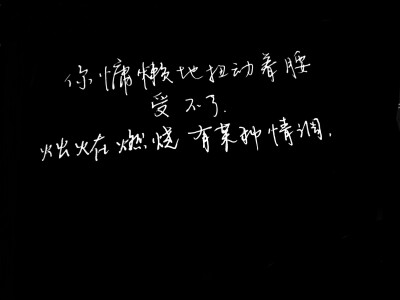 你慵懒地扭动着腰
受不了.
烛火在燃烧 有某种情调.